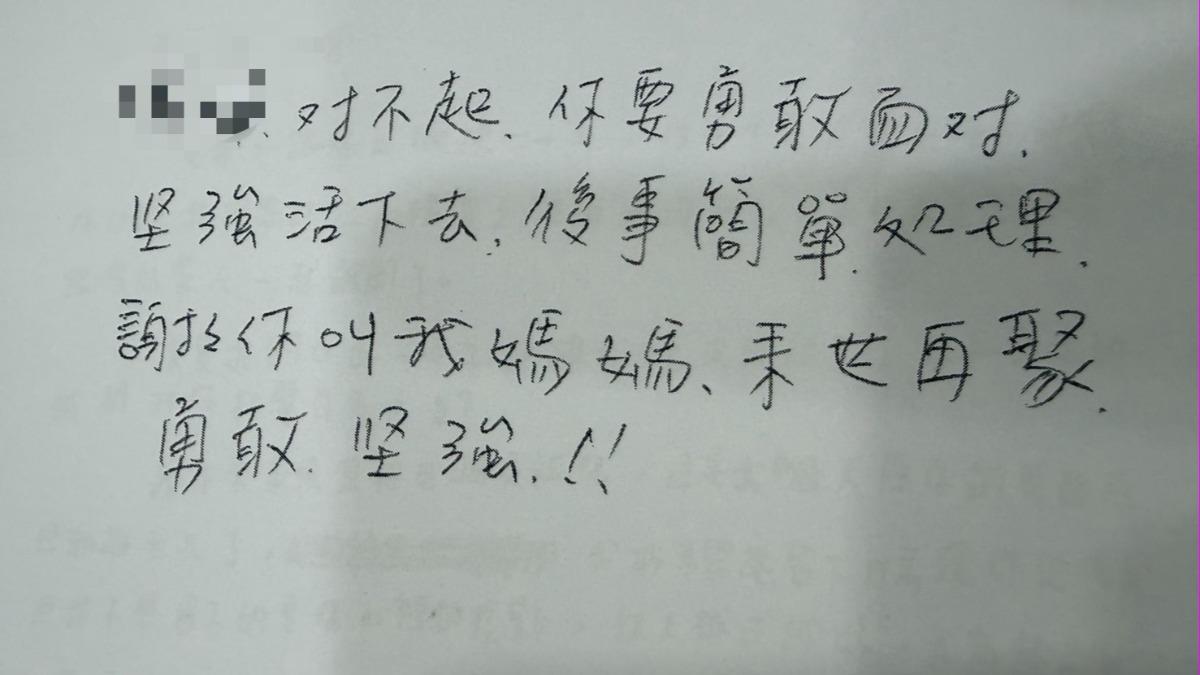 对不起.你要勇敢面对.
坚強活下去.後事簡單处理.
謝於你叫我媽媽、来世再聚.
勇敢.坚強.!!